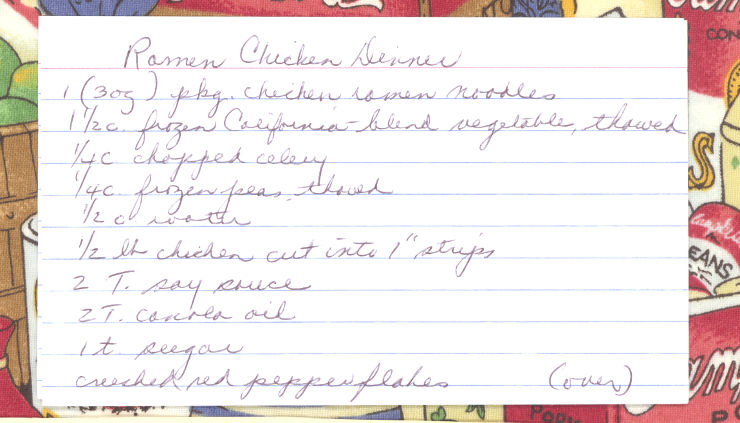 Ramen Chicken Dinner
1 (3oz) pkg. chicken ramen noodles
1 1/2 c. frozen California-blend vegetable, thawed
1/4 c chopped celery
1/4 c. frozen peas, thawed
1/2 c water
1/2 lb chicken cut into 1" strips
2 T. soy sauce
2 T. canola oil
1 t. sugar
crushed red pepper flakes (over)
CON
S
Campbell's
EANS
PORK